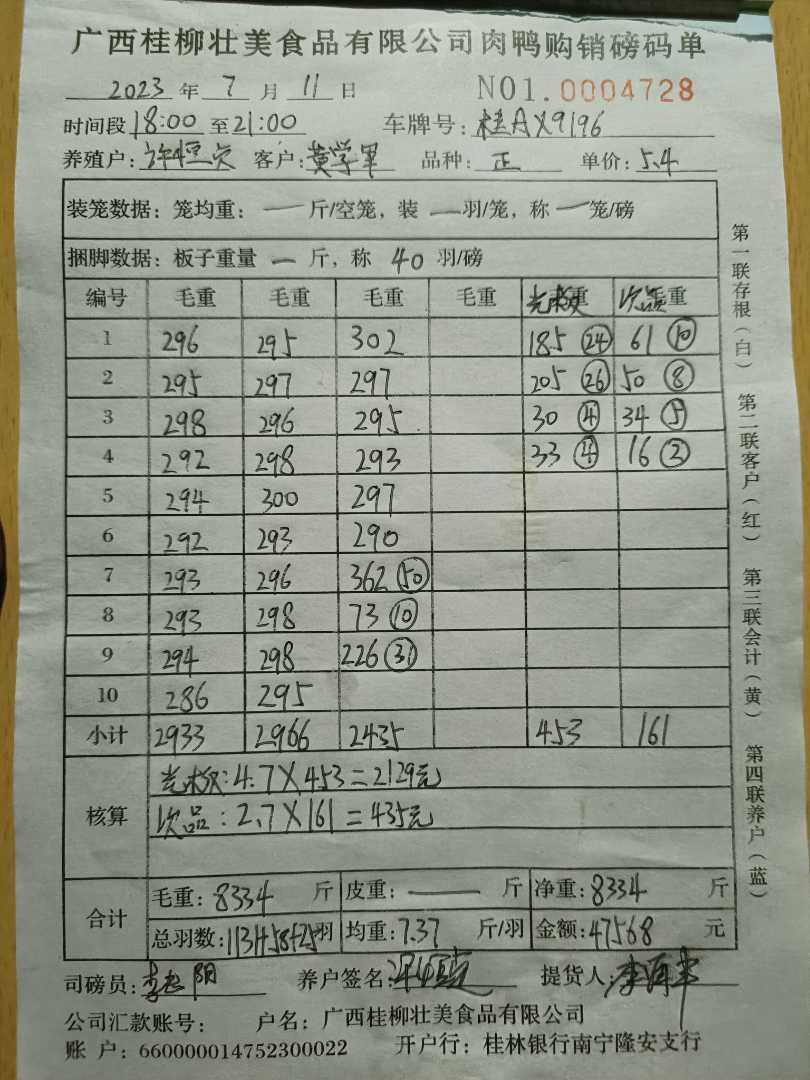 广西桂柳壮美食品有限公司肉鸭购销磅码单
2023 年 7 月 11 日 NO1.0004728
时间段 18:00 至 21:00 车牌号: 桂AX9196
养殖户: 客户: 黄学军 品种: 正 单价: 5.4
装笼数据: 笼均重: — 斤/空笼, 装 — 羽/笼, 称 — 笼/磅
捆脚数据: 板子重量 — 斤, 称 40 羽/磅
编号 毛重 毛重 毛重 毛重 次品
1 296 295 302 185 (24) 61 (10)
2 295 297 297 205 (26) 50 (8)
3 298 296 295 30 (4) 34 (5)
4 292 298 293 33 (4) 16 (2)
5 294 300 297
6 292 293 290
7 293 296 362 (50)
8 293 298 73 (10)
9 294 298 226 (31)
10 286 295
小计 2933 2966 2435 453 161
核算
4.7×453=2129元
次品: 2.7×161=435元
合计
毛重: 8334 斤 皮重: — 斤 净重: 8334 斤
总羽数: 1131+58+25 羽 均重: 7.37 斤/羽 金额: 47568 元
司磅员: 养户签名: 提货人:
公司汇款账号: 户名: 广西桂柳壮美食品有限公司
账 户: 660000014752300022 开户行: 桂林银行南宁隆安支行
第一联存根(白) 第二联客户(红) 第三联会计(黄) 第四联养户(蓝)